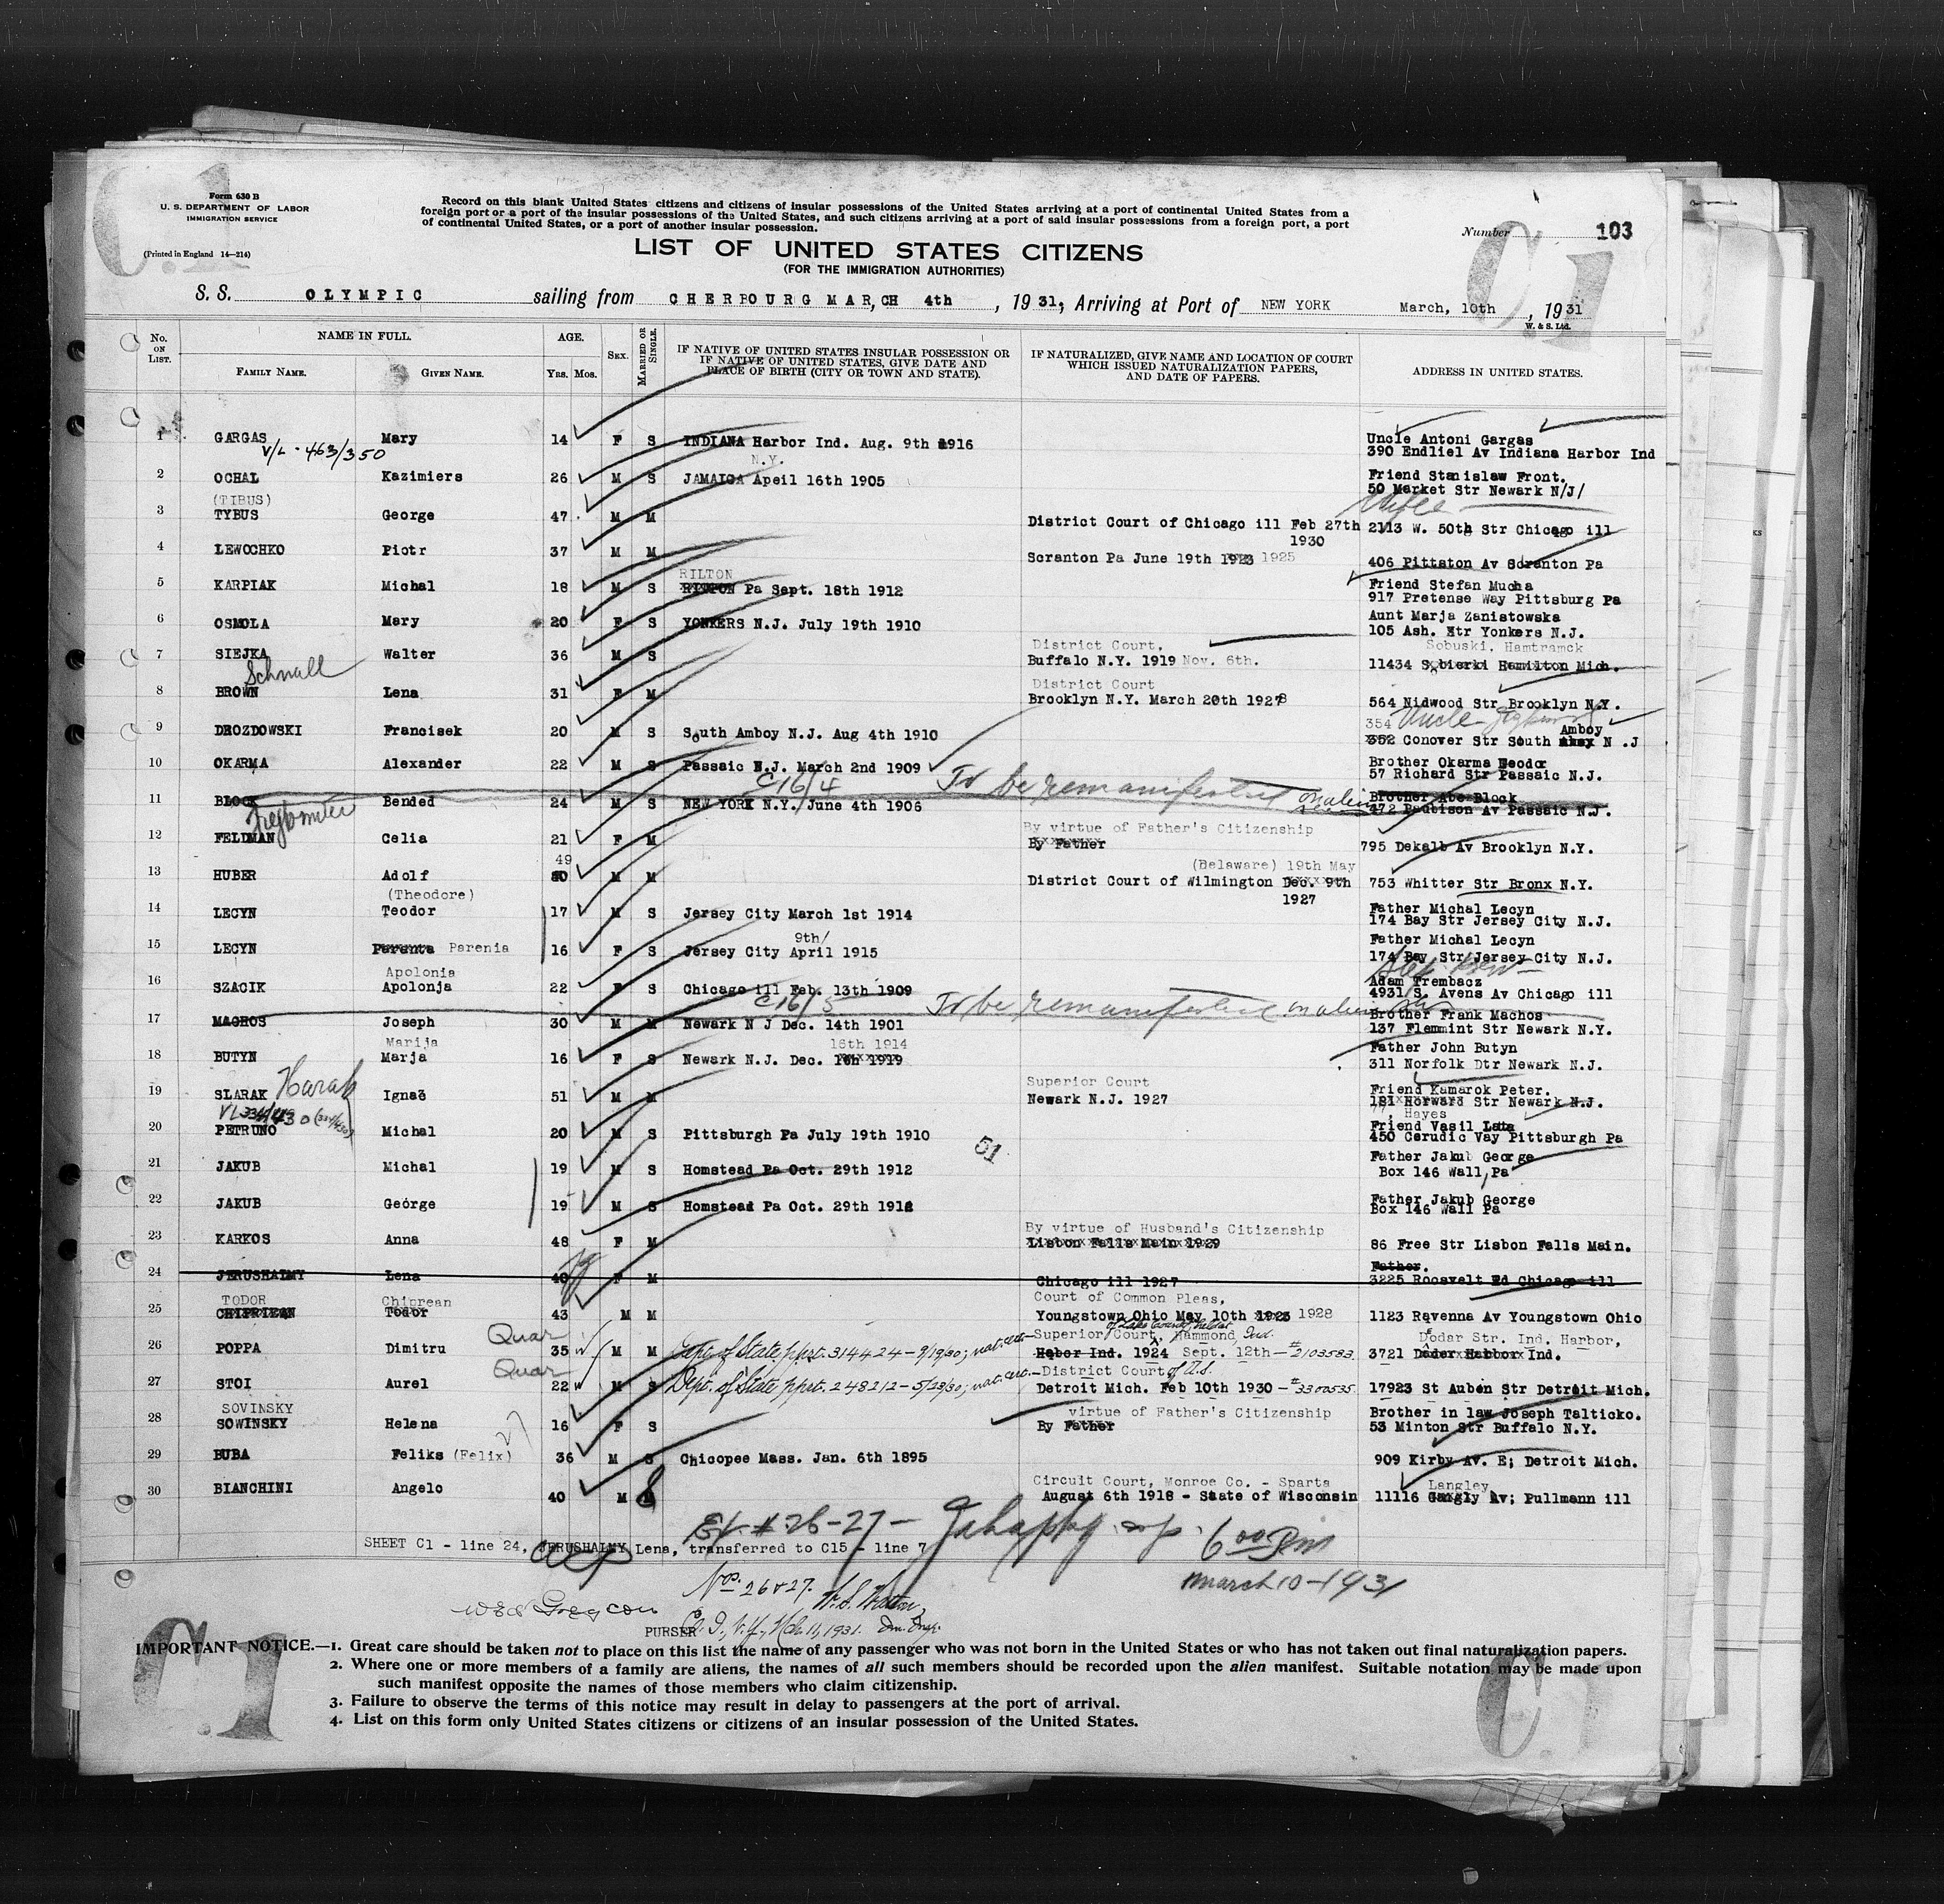 C1
Form 630 B
U. S. DEPARTMENT OF LABOR
IMMIGRATION SERVICE
(Printed in England 14—214)
Record on this blank United States citizens and citizens of insular possessions of the United States arriving at a port of continental United States from a
foreign port or a port of the insular possessions of the United States, and such citizens arriving at a port of said insular possessions from a foreign port, a port
of continental United States, or a port of another insular possession.
Number 103
C1
LIST OF UNITED STATES CITIZENS
(FOR THE IMMIGRATION AUTHORITIES)
S. S. OLYMPIC sailing from CHERBOURG MAR,CH 4th , 1931, Arriving at Port of NEW YORK March, 10th , 1931
W. & S. Ltd.
No. ON LIST. NAME IN FULL. AGE. SEX. MARRIED OR SINGLE. IF NATIVE OF UNITED STATES INSULAR POSSESSION OR IF NATIVE OF UNITED STATES, GIVE DATE AND PLACE OF BIRTH (CITY OR TOWN AND STATE). IF NATURALIZED, GIVE NAME AND LOCATION OF COURT WHICH ISSUED NATURALIZATION PAPERS, AND DATE OF PAPERS. ADDRESS IN UNITED STATES.
FAMILY NAME. GIVEN NAME. Yrs. Mos.
1 GARGAS Mary 14 F S INDIANA Harbor Ind. Aug. 9th 1916 Uncle Antoni Gargas
V/L - 463/350 390 Endliel Av Indiana Harbor Ind
N.Y.
2 OCHAL Kazimiers 26 M S JAMAICA Apeil 16th 1905 Friend Stanislaw Front.
50 Market Str Newark N/J/
(TIBUS) Wife
3 TYBUS George 47 M M District Court of Chicago ill Feb 27th 2113 W. 50th Str Chicago ill
1930
4 LEWOCHKO Piotr 37 M M Scranton Pa June 19th 1923 1925 406 Pittston Av Scranton Pa
RILTON
5 KARPIAK Michal 18 M S RILTON Pa Sept. 18th 1912 Friend Stefan Mucha
917 Pretense Way Pittsburg Pa
6 OSMOLA Mary 20 F S YONKERS N.J. July 19th 1910 Aunt Marja Zanistowska
105 Ash. Str Yonkers N.J.
District Court, Sobuski, Hamtramck
7 SIEJKA Walter 36 M S Buffalo N.Y. 1919 Nov. 6th. 11434 Sobierki Hamilton Mich.
Schnall District Court
8 BROWN Lena 31 F M Brooklyn N.Y. March 20th 1928 564 Nidwood Str Brooklyn N.Y.
354 Uncle Amboy
9 DROZDOWSKI Francisek 20 M S South Amboy N.J. Aug 4th 1910 352 Conover Str South N .J
10 OKARMA Alexander 22 M S Passaic N.J. March 2nd 1909 Brother Okarma Teodor
57 Richard Str Passaic N.J.
C16/4 To be remanifested on alien
11 BLOCK Bended 24 M S NEW YORK N.Y. June 4th 1906 Brother Abe Block
472 Paubison Av Passaic N.J.
By virtue of Father's Citizenship
12 FELDMAN Celia 21 F M By Father 795 Dekalb Av Brooklyn N.Y.
49 (Belaware) 19th May
13 HUBER Adolf 50 M M District Court of Wilmington Dec. 9th 753 Whitter Str Bronx N.Y.
1927
(Theodore)
14 LECYN Teodor 17 M S Jersey City March 1st 1914 Father Michal Lecyn
174 Bay Str Jersey City N.J.
9th/
15 LECYN Parenta Parenia 16 F S Jersey City April 1915 Father Michal Lecyn
174 Bay Str Jersey City N.J.
Apolonia
16 SZACIK Apolonja 22 F S Chicago ill Feb. 13th 1909 Adam Trembacz
4931 S. Avens Av Chicago ill
C16/5 To be remanifested on alien
17 MACHOS Joseph 30 M M Newark N J Dec. 14th 1901 Brother Frank Machos
137 Flemmint Str Newark N.Y.
Marija 16th 1914
18 BUTYN Marja 16 F S Newark N.J. Dec. 16h 1919 Father John Butyn
311 Norfolk Dtr Newark N.J.
Harak Superior Court
19 SLARAK Ignaz 51 M M Newark N.J. 1927 Friend Kamarok Peter.
181 Horward Str Newark N.J.
77, Hayes
20 PETRUNO Michal 20 M S Pittsburgh Pa July 19th 1910 Friend Vasil Lata
450 Cerudic Vay Pittsburgh Pa
51
21 JAKUB Michal 19 M S Homstead Pa Oct. 29th 1912 Father Jakub George
Box 146 Wall, Pa
22 JAKUB George 19 M S Homstead Pa Oct. 29th 1912 Father Jakub George
Box 146 Wall Pa
By virtue of Husband's Citizenship
23 KARKOS Anna 48 F M Lisbon Falls Main 1929 86 Free Str Lisbon Falls Main.
24 JERUSHALMY Lena 40 F M Chicago ill 1927 Father.
3225 Roosvelt Rd Chicago ill
TODOR Chiprean Court of Common Pleas,
25 CHIPRIEAN Todor 43 M M Youngstown Ohio May 10th 1923 1928 1123 Ravenna Av Youngstown Ohio
Quar Superior Court, Hammond, Ind. Dodar Str. Ind. Harbor,
26 POPPA Dimitru 35 M M Dept. of State pprt. 314424 - 9/19/30; nat. cert. Habor Ind. 1924 Sept. 12th - #2103583 3721 Doder Harbor Ind.
Quar District Court of U.S.
27 STOI Aurel 22 M S Dept. of State pprt. 248212 - 5/23/30; nat. cert. Detroit Mich. Feb 10th 1930 - #3300535 17923 St Auben Str Detroit Mich.
SOVINSKY virtue of Father's Citizenship
28 SOWINSKY Helena 16 F S By Father Brother in law Joseph Talticko.
53 Minton Str Buffalo N.Y.
29 BUBA Feliks (Felix) 36 M S Chicopee Mass. Jan. 6th 1895 909 Kirby Av. E; Detroit Mich.
Circuit Court, Monroe Co. - Sparta Langley
30 BIANCHINI Angelo 40 M S August 6th 1918 - State of Wisconsin 11116 Gangly Av; Pullmann ill
# 26-27 - 6 00 pm
SHEET C1 - line 24, JERUSHALMY Lena, transferred to C15 - line 7
March 10-1931
Nos. 26 & 27.
PURSER
IMPORTANT NOTICE.—1. Great care should be taken not to place on this list the name of any passenger who was not born in the United States or who has not taken out final naturalization papers.
2. Where one or more members of a family are aliens, the names of all such members should be recorded upon the alien manifest. Suitable notation may be made upon
such manifest opposite the names of those members who claim citizenship.
3. Failure to observe the terms of this notice may result in delay to passengers at the port of arrival.
4. List on this form only United States citizens or citizens of an insular possession of the United States.
C1
C1